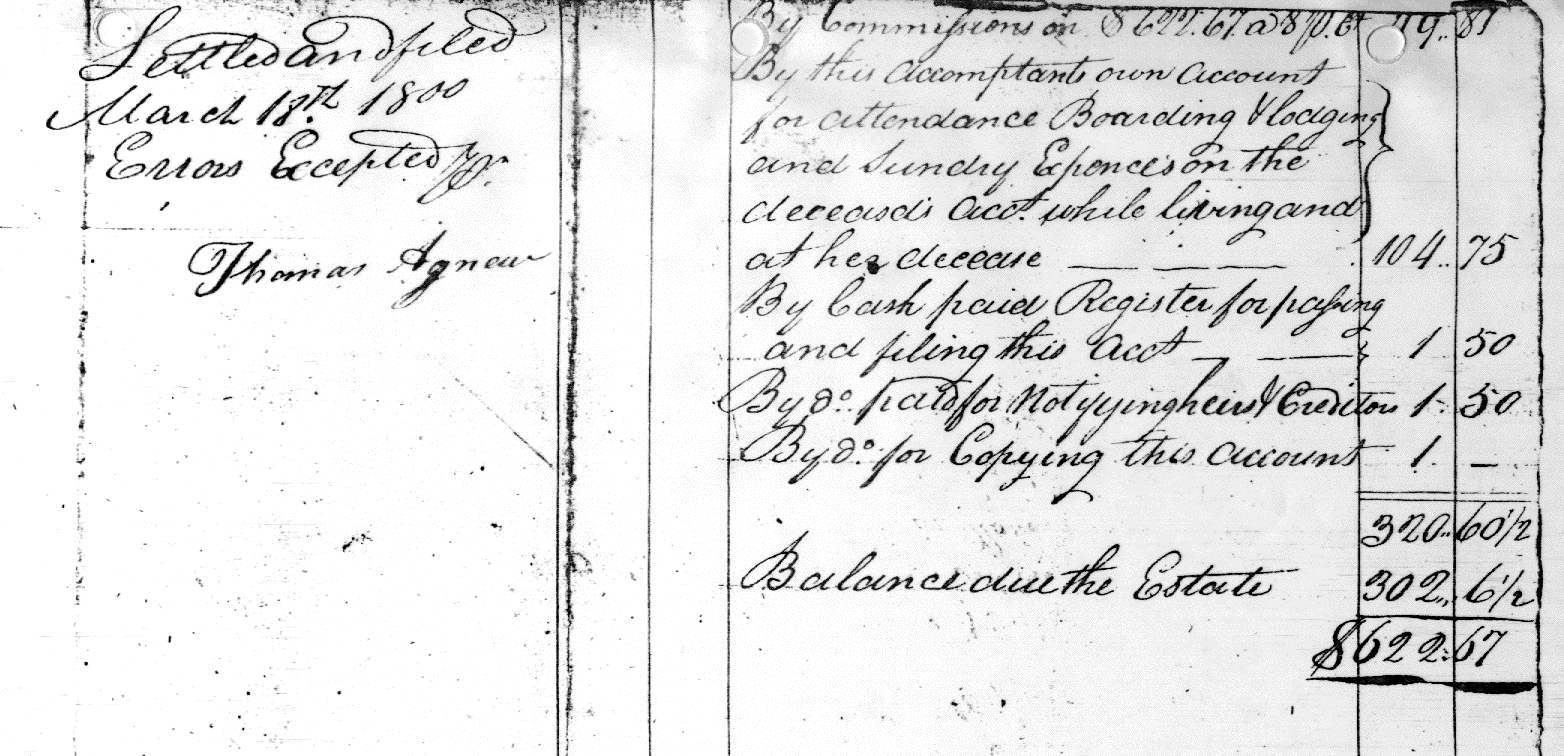 Settled and filed
March 18.th 1800
Errors Excepted pr.
Thomas Agnew
By Commissions on $622.67. a 8 p. Ct 49.. 81
By this accomptants own account
for attendance Boarding & lodging
and Sundry Expences on the
deceasd's acct. while living and
at her decease — — — 104.. 75
By Cash paid Register for passing
and filing this acct — — 1 50
By do. paid for Notifying heirs & Creditors 1. 50
By do. for Copying this account 1. —
320.. 60 1/2
Balance due the Estate 302.. 6 1/2
$622.. 67